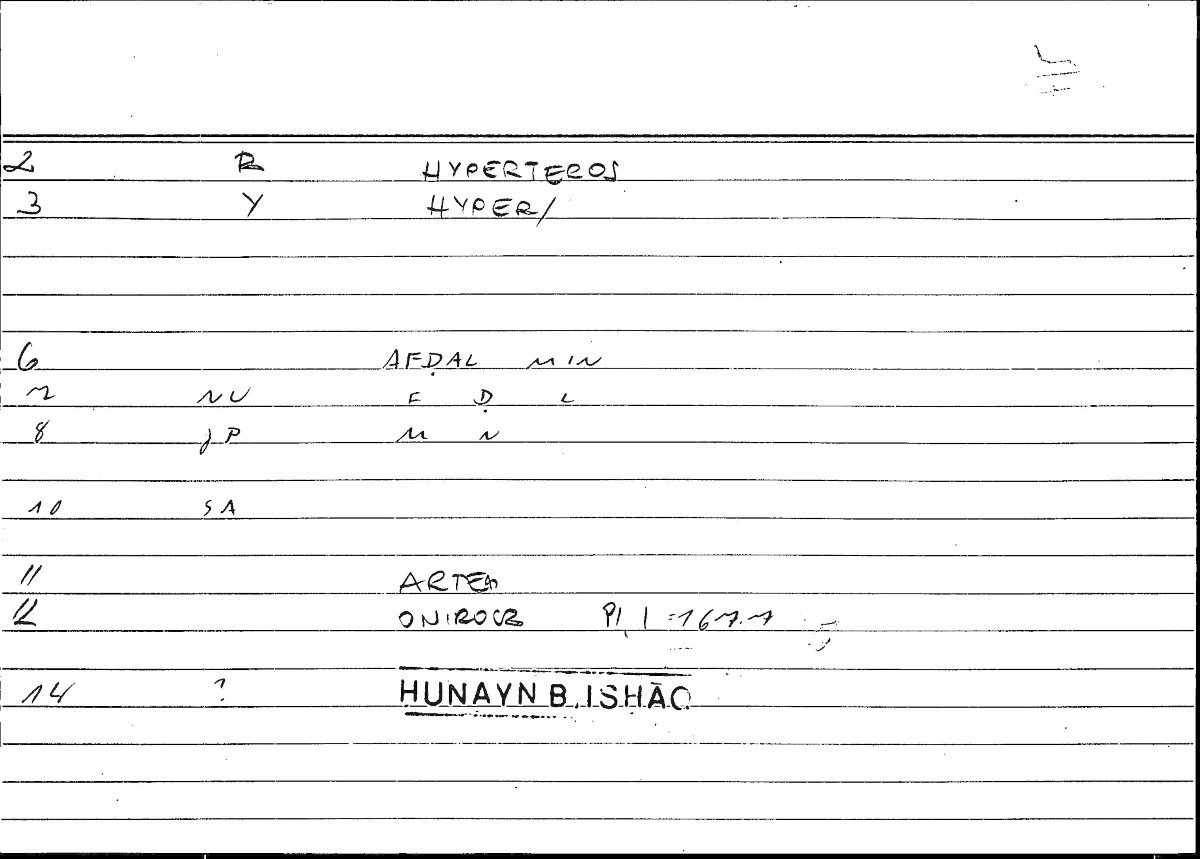 2 R HYPERTEROS
3 Y HYPER/
6 AFḌAL MIN
7 NU F Ḍ L
8 JP M N
10 SA
11 ARTEM
12 ONIROCR 1 167.7
14 ? HUNAYN B. ISHĀQ